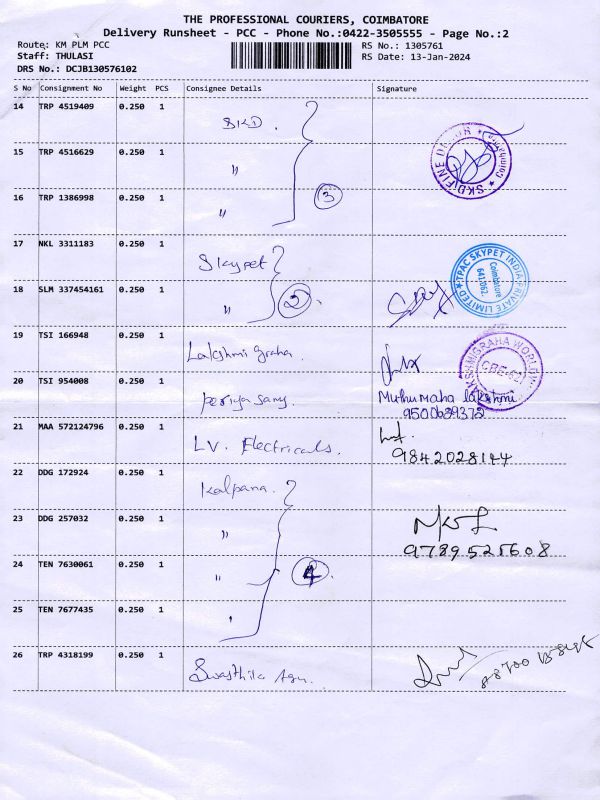 THE PROFESSIONAL COURIERS, COIMBATORE
Delivery Runsheet - PCC - Phone No.:0422-3505555 - Page No.:2
Route: KM PLM PCC RS No.: 1305761
Staff: THULASI RS Date: 13-Jan-2024
DRS No.: DCJB130576102
S No Consignment No Weight PCS Consignee Details Signature
14 TRP 4519409 0.250 1 SKD.
15 TRP 4516629 0.250 1 "
SKD FINE DECOR
16 TRP 1386998 0.250 1 " 3
17 NKL 3311183 0.250 1 Skypet
TPAC SKYPET INDIA PRIVATE LIMITED Coimbatore 641062
18 SLM 337454161 0.250 1 " 2.
19 TSI 166948 0.250 1 Lakshmi Graha.
LAKSHMIGRAHA WORLD CBE-62
20 TSI 954008 0.250 1 Periya Samy. Muthu maha lakshmi
9500639372
21 MAA 572124796 0.250 1 L.V. Electricals. 9842028144
22 DDG 172924 0.250 1 Kalpana.
23 DDG 257032 0.250 1 "
9789525608
24 TEN 7630061 0.250 1 " 4.
25 TEN 7677435 0.250 1 "
26 TRP 4318199 0.250 1 Swasthik